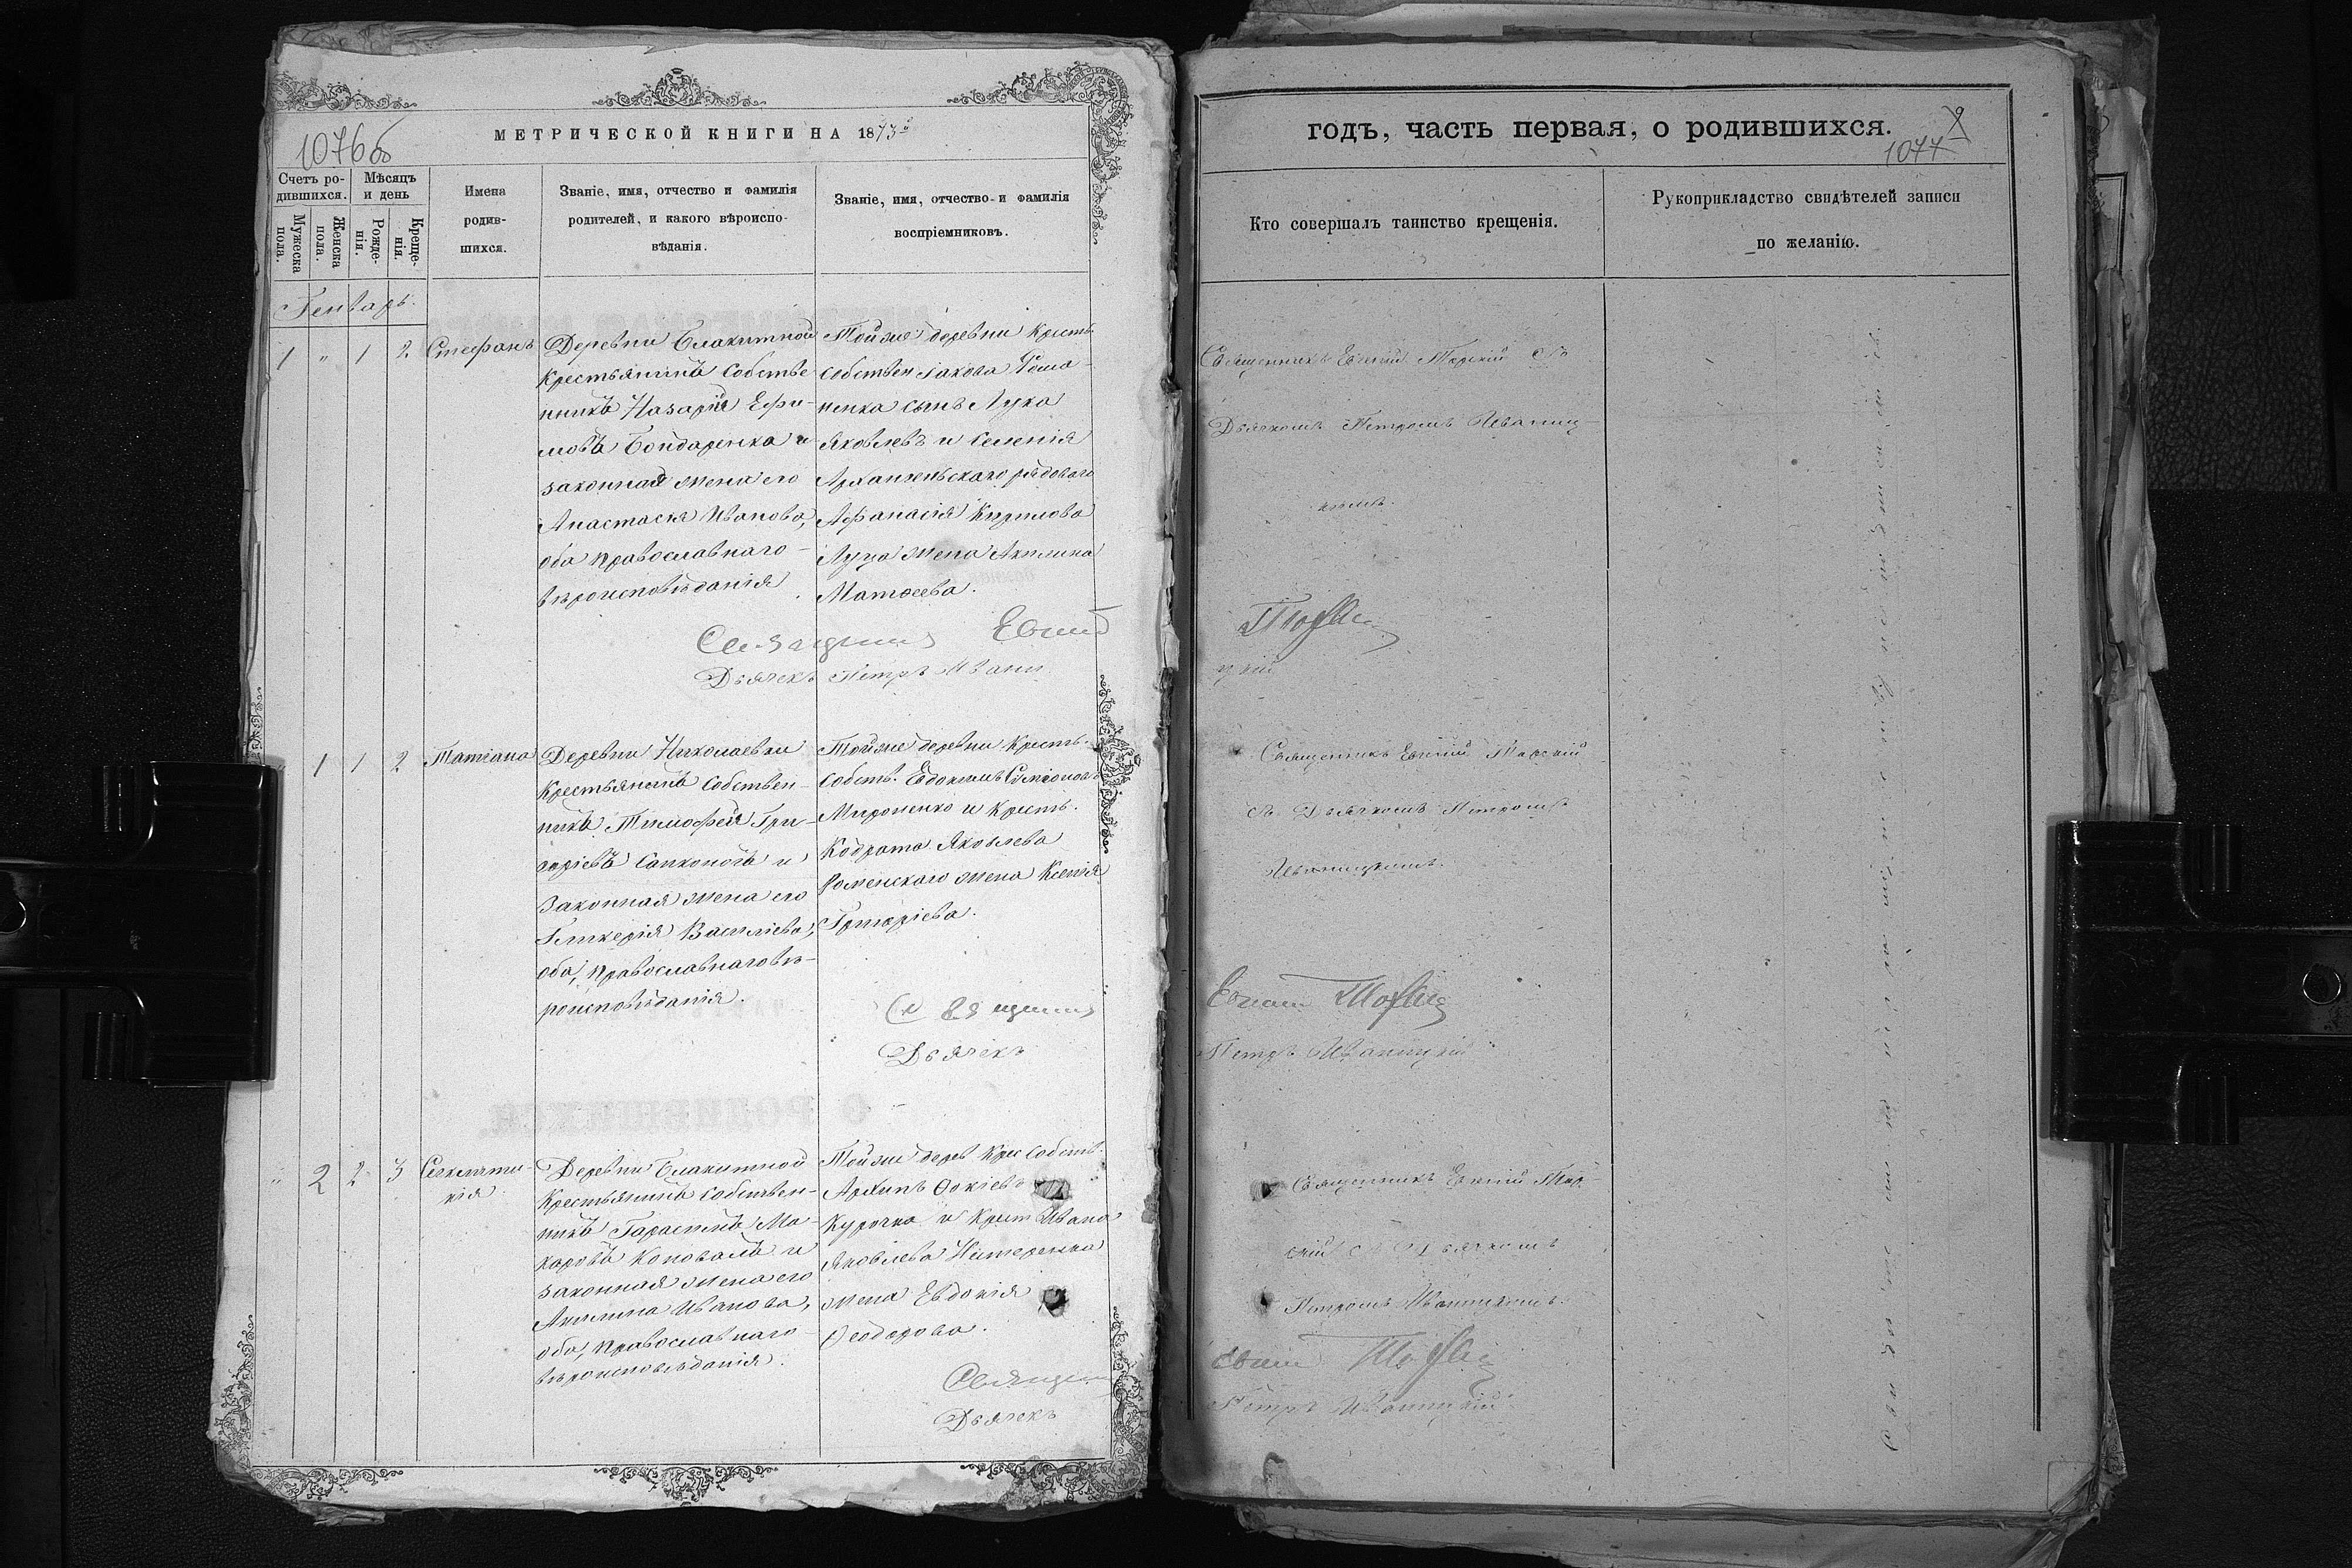 МЕТРИЧЕСКОЙ КНИГИ НА 1873й
1076об
Счетъ ро-
дившихся.
Мѣсяцъ
и день
Мужеска
пола.
Женска
пола.
Рожде-
нія.
Креще-
нія.
Имена
родив-
шихся.
Званіе, имя, отчество и фамилія
родителей, и какого вѣроиспо-
вѣданія.
Званіе, имя, отчество и фамилія
воспріемниковъ.
Генварь.
1 " 1 2 Стефанъ
Деревни Блакитной
Крестьянинъ Собстве
нникъ Назарій Ефи-
мовъ Бондаренко и
законная жена его
Анастасія Иванова,
оба православнаго
вѣроисповѣданія
Тойже деревни Крест.
Собствен Іакова Рома-
ненка сынъ Лука
Яковлевъ и Селенія
Архангельскаго рядоваго
Афанасія Кирилова
жена Акилина
Матѳеева.
Священник Евгній
Дьячекъ Петръ Ивани
1 1 2 Татіана
Деревни Николаевки
Крестьянинъ Собствен-
никъ Тимофей Гри-
горіевъ и
Законная жена его
Гликерія Василіева,
оба, православнаго вѣ-
роисповѣданія.
Тойже деревни Кресть.
Собств. Евдокимъ Симіоновъ
Мироненко и Кресть.
Кодрата Яковлева
Роменскаго жена Ксенія
Григоріева.
Священник
Дьячекъ
" 2 2 3
Деревни Блакитной
Крестьянинъ собствен-
никъ Гарасимъ Ма-
каровъ Коновалъ и
законная жена его
Акилина Иванова,
оба, православнаго
вѣроисповѣданія.
Тойже дерев Крес Собств.
Архипъ
Курочка и Крест Ивана
Яковлева Нестеренка
жена Евдокія
Ѳеодорова.
Священ
Дьячекъ
годъ, часть первая, о родившихся.
1077
Кто совершалъ таинство крещенія.
Рукоприкладство свидѣтелей записи
по желанію.
Священникъ Евгній Торскій съ
Дьячкомъ Петромъ Иваниц-
кимъ.
цкій
Священникъ Евгній Торскій
съ Дьячкомъ Петромъ
Иваницкимъ.
Петръ Иваницкій
Священникъ Евгній Тор-
скій съ Дьячкомъ
Петромъ Иваницкимъ.
Петръ Иваницкій